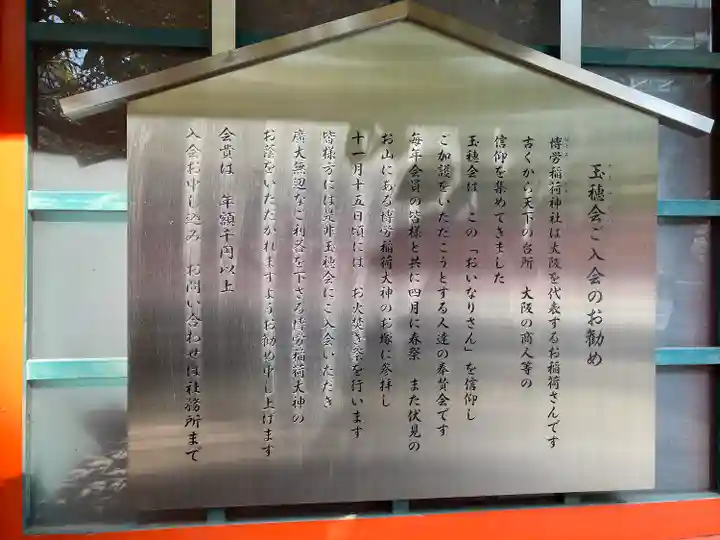 玉穂会ご入会のお勧め
博労稲荷神社は大阪を代表するお稲荷さんです
古くから天下の台所 大阪の商人等の
信仰を集めてきました
玉穂会は この「おいなりさん」を信仰し
ご加護をいただこうとする人達の奉賛会です
毎年会員の皆様と共に四月に春祭 また伏見の
お山にある博労稲荷大神のお塚に参拝し
十一月十五日頃には お火焚き祭を行います
皆様方には是非玉穂会にご入会いただき
廣大無辺なご利益を下さる博労稲荷大神の
お蔭をいただかれますようお勧め申し上げます
会費は 年額千円以上
入会お申し込み お問い合わせは社務所まで